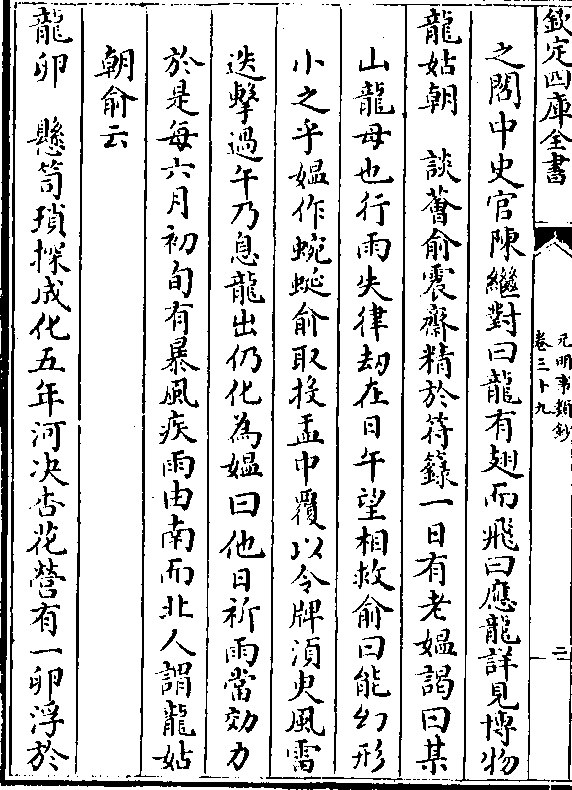 欽定四庫全書
元明事類鈔
卷三十九
二
之閣中史官陳繼對曰龍有翅而飛曰應龍詳見博物
龍姑朝　談薈俞震齋精於符籙一日有老媼謁曰某
山龍母也行雨失律劫在日午望相救俞曰能幻形
小之乎媼作蜿蜒俞取投盂中覆以令牌湏臾風雷
迭擊過午乃息龍出仍化為媼曰他日祈雨當効力
於是每六月初旬有暴風疾雨由南而北人謂龍姑
朝俞云
龍卵　懸笥瑣探成化五年河决杏花營有一卵浮於